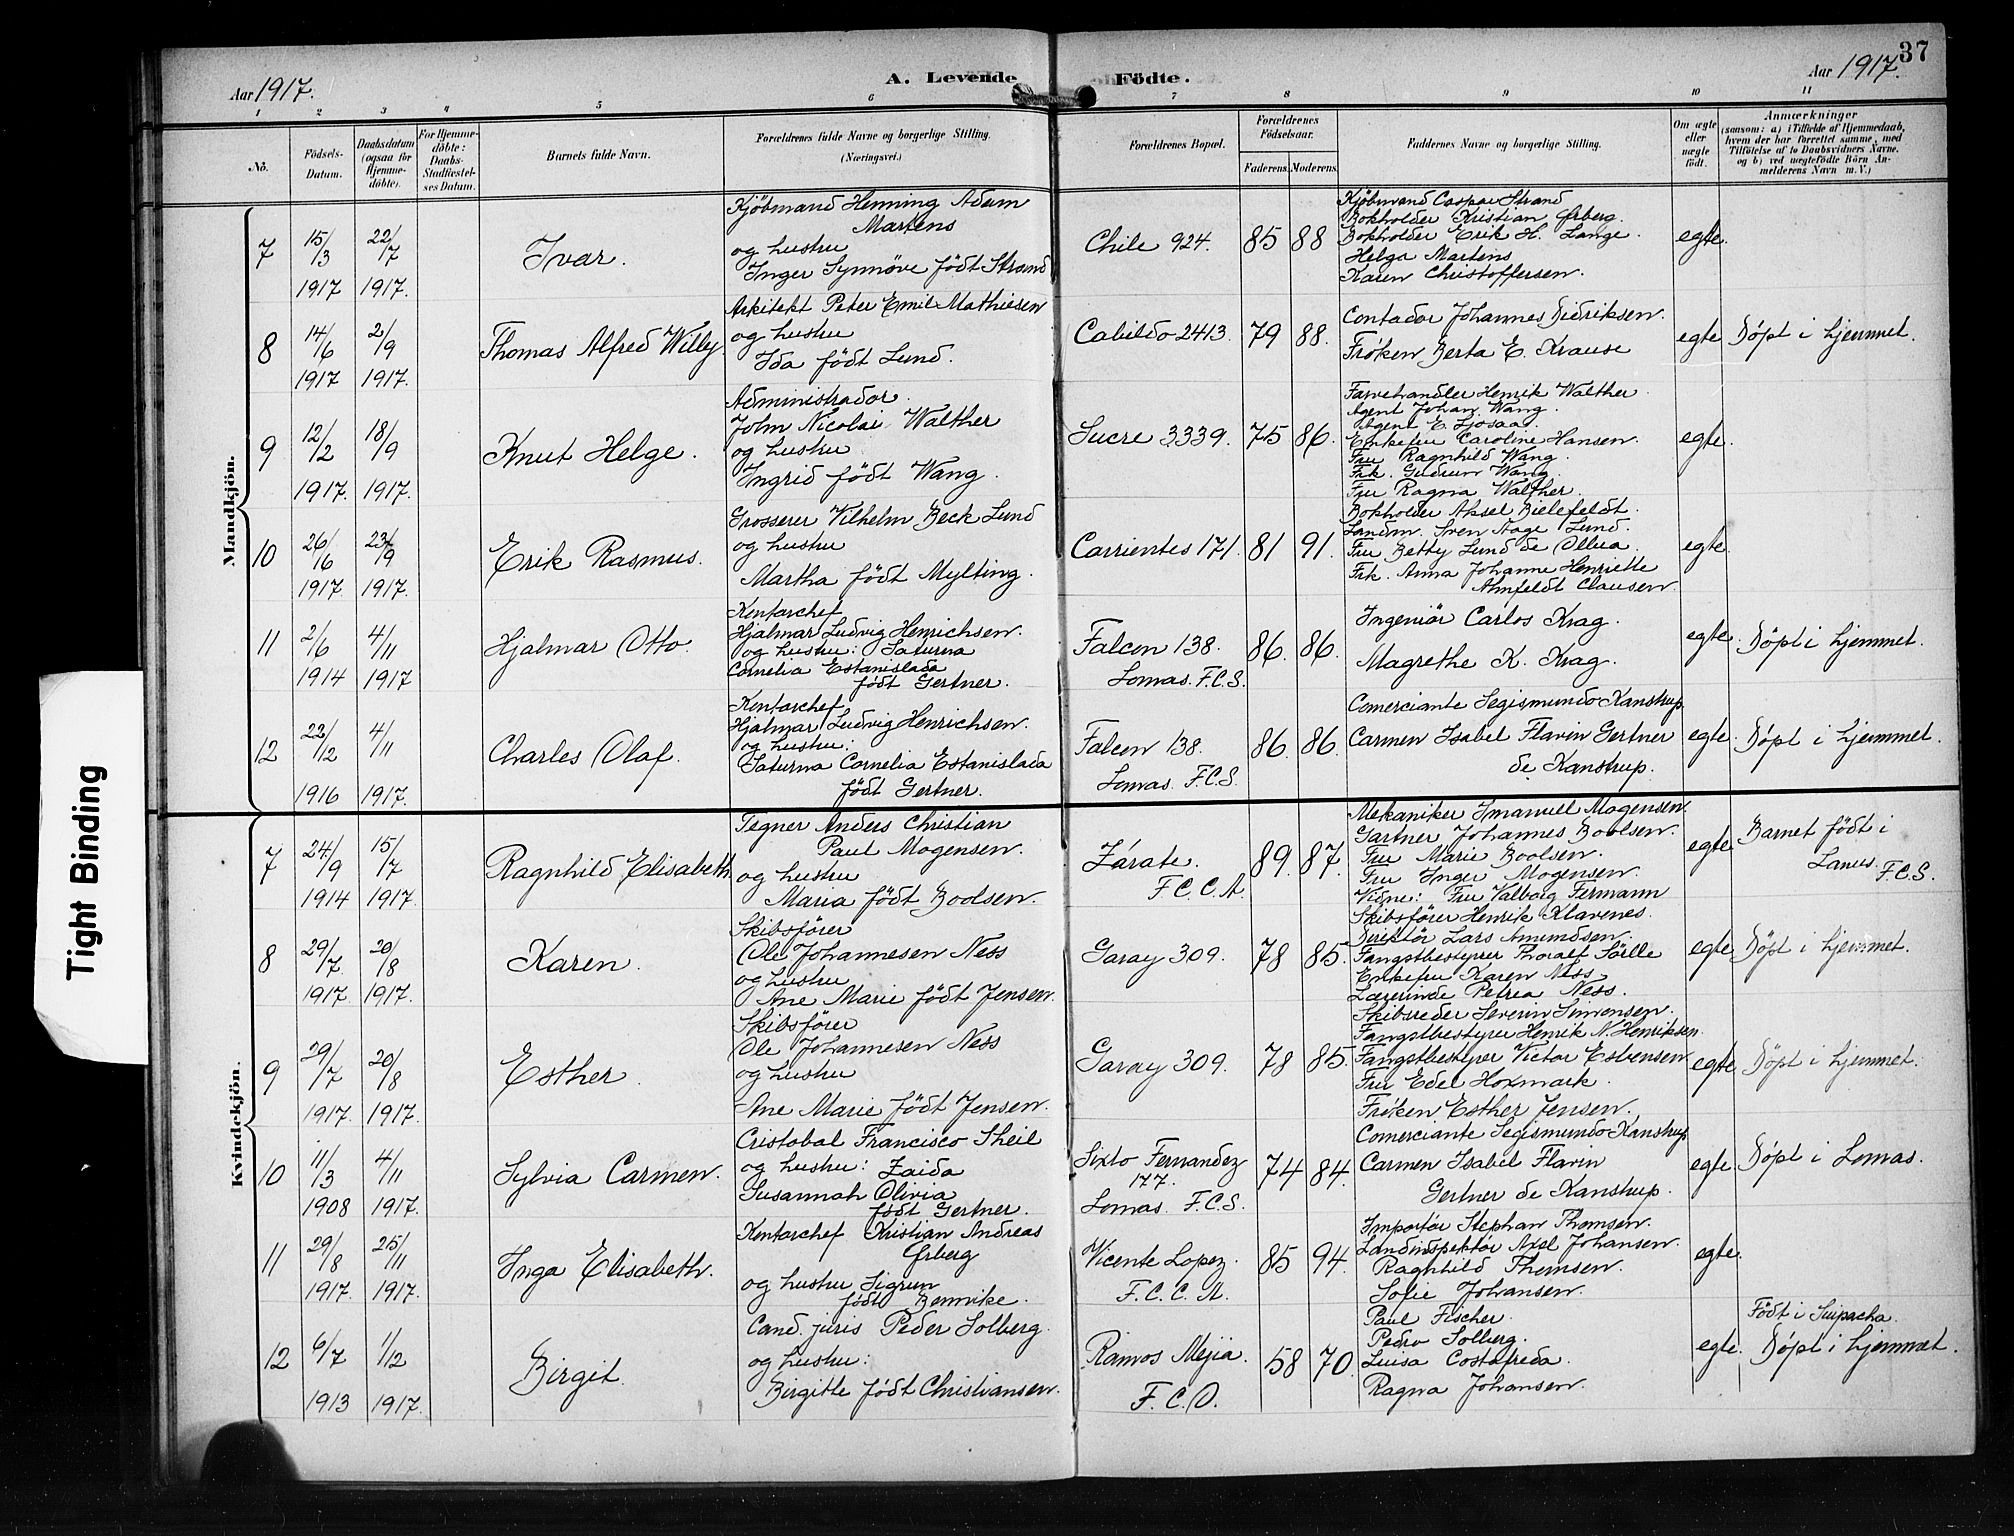 37
A. Levende Födte.
Aar 1917.
Aar 1917.
1 2 3 4 5 6 7 8 9 10 11
No.
Födsels-Datum.
Daabsdatum (ogsaa for Hjemmedöbte).
For Hjemmedöbte: Daabs-Stadfæstelses Datum.
Barnets fulde Navn.
Forældrenes fulde Navne og borgerlige Stilling.
(Næringsvei.)
Forældrenes Bopæl.
Forældrenes Födselsaar.
Faderens. Moderens.
Faddernes Navne og borgerlige Stilling.
Om ægte eller uægte födt.
Anmærkninger
(saasom: a) i Tilfælde af Hjemmedaab, hvem der har forrettet samme, med Tilföielse af to Daabsvidners Navne, og b) ved uægtefödte Börn Anmelderens Navn m. V.)
Mandkjön.
7
15/3 1917
22/7 1917.
Ivar.
Kjöbmand Henning Adam
Martens
og hustru
Inger Synnöve född Strand
Chile 924.
85 88
Kjöbmand Caspar Strand
Bokholder Kristian Ørberg.
Bokholder Erik H. Lange.
Helga Martens
Karen Christoffersen.
egte.
8
14/6 1917
2/9 1917.
Thomas Alfred Willy.
Arkitekt Peter Emil Mathiesen
og hustru
Ida født Lund.
Cabildo 2413.
79 88.
Contador Johannes Didriksen.
Frøken Berta E. Krause
egte
Döpt i hjemmet.
9
12/2 1917.
18/9 1917.
Knut Helge.
Administrador.
John Nicolai Walther
og hustru
Ingrid født Wang.
Sucre 3339.
75 86.
Farvehandler Henrik Walther
Agent Johan Wang.
Agent E. Ljosaa.
Enkefru Caroline Hansen.
Fru Ragnhild Wang.
Frk. Gudrun Wang.
Fru Ragna Walther.
egte.
10
26/6 1917.
23/9 1917.
Erik Rasmus.
Grosserer Vilhelm Beck Lund
og hustru
Martha født Mylting.
Corrientes 171.
81 91.
Bokholder Aksel Bielefeldt.
Landm. Sven Aage Lund.
Fru Betty Lund de
Frk. Anna Johanne Henriette
Ahnfeldt Clausen.
egte.
11
2/6 1914
4/11 1917
Hjalmar Otto.
Kontorchef
Hjalmar Ludvig Henrichsen.
og hustru: Saturna
Cornelia Estanislada
født Gertner.
Falcon 138.
Lomas. F.C.S.
86. 86.
Ingeniör Carlos Krag.
Magrethe K. Krag.
egte.
Döpt i hjemmet.
12
22/12 1916
4/11 1917.
Charles Olaf.
Kontorchef
Hjalmar Ludvig Henrichsen.
og hustru:
Saturna Cornelia Estanislada
født Gertner.
Falcon 138.
Lomas. F.C.S.
86. 86.
Comerciante Segismundo Kanstrup.
Carmen Isabel Flavin Gertner
de Kanstrup.
egte.
Döpt i hjemmet.
Kvindekjön.
7
24/9 1914
15/7 1917.
Ragnhild Elisabeth.
Tegner Anders Christian
Paul Mogensen.
og hustru
Maria født Boolsen.
Zárate.
F.C.C.A.
89. 87.
Mekaniker Imanuel Mogensen
Gartner Johannes Boolsen.
Fru Marie Boolsen.
Fru Inger Mogensen.
Vidne: Fru Valborg Fermann
egte.
Barnet født i
Lanus.
F.C.S.
8
29/7 1917.
20/8 1917.
Karen.
Skibsfører
Ole Johannesen Ness
og hustru
Ane Marie født Jensen.
Garay 309.
78 85.
Skibsfører Henrik Klavenes.
Direktör Lars Amundsen.
Fangstbestyrer Thoralf Sölle
Enkefru Karen Ness
Lærerinde Petrea Ness.
egte.
Döpt i hjemmet.
9
29/7 1917.
20/8 1917.
Esther.
Skibsfører
Ole Johannesen Ness
og hustru
Ane Marie født Jensen.
Garay 309.
78 85.
Skibsreder Severin Simensen.
Fangstbestyrer Henrik N. Henriksen
Fangstbestyrer Victor Esbensen
Fru Edel Hoxmark.
Frøken Esther Jensen.
egte.
Döpt i hjemmet.
10
11/3 1908
4/11 1917.
Sylvia Carmen.
Cristobal Francisco Sheil
og hustru: Zaida
Susannah Olivia
født Gertner.
Sixto Fernandez
177.
Lomas. F.C.S.
74 84.
Comerciante Segismundo Kanstrup
Carmen Isabel Flavin
Gertner de Kanstrup.
egte
Döpt i Lomas.
11
29/8 1917.
25/11 1917.
Inga Elisabeth.
Kontorchef Kristian Andreas
Ørberg
og hustru Sigrun
født Bennike.
Vicente Lopez.
F.C.C.A.
85 94.
Importör Stephan Thomsen.
Landinspektör Axel Johansen.
Ragnhild Thomsen.
Sofie Johansen.
egte.
12
6/7 1913
1/12 1917.
Birgit.
Cand. juris Peder Solberg.
og hustru:
Birgitte født Christiansen.
Ramos Mejia.
F.C.O.
58 70.
Paul Fischer.
Pedro Solberg.
Luisa Costafreda.
Ragna Johansen.
egte.
Født i Suipacha.
Döpt i hjemmet.
Tight Binding